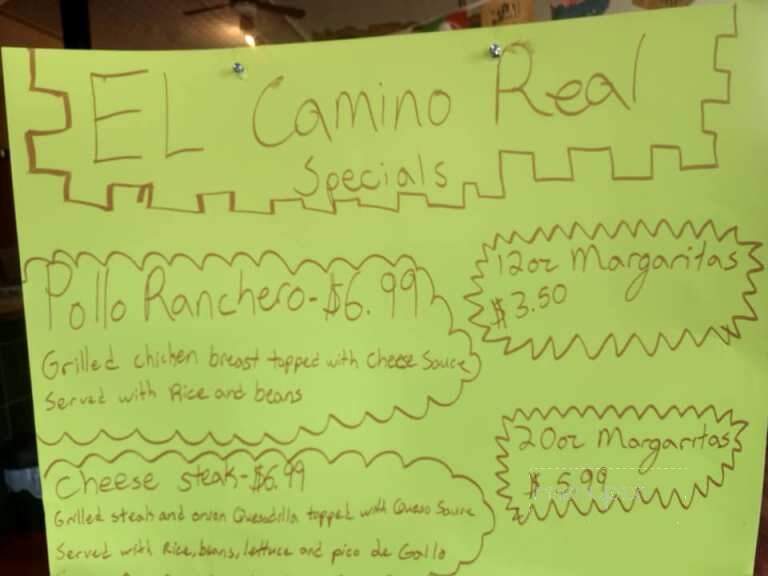 EL Camino Real
Specials
Pollo Ranchero-$6.99
Grilled chicken breast topped with Cheese Sauce
Served with Rice and beans
12oz Margaritas
$3.50
20oz Margaritas
$5.99
Cheese steak-$6.99
Grilled steak and onion Quesadilla topped with Queso Sauce
Served with Rice, beans, lettuce and pico de Gallo